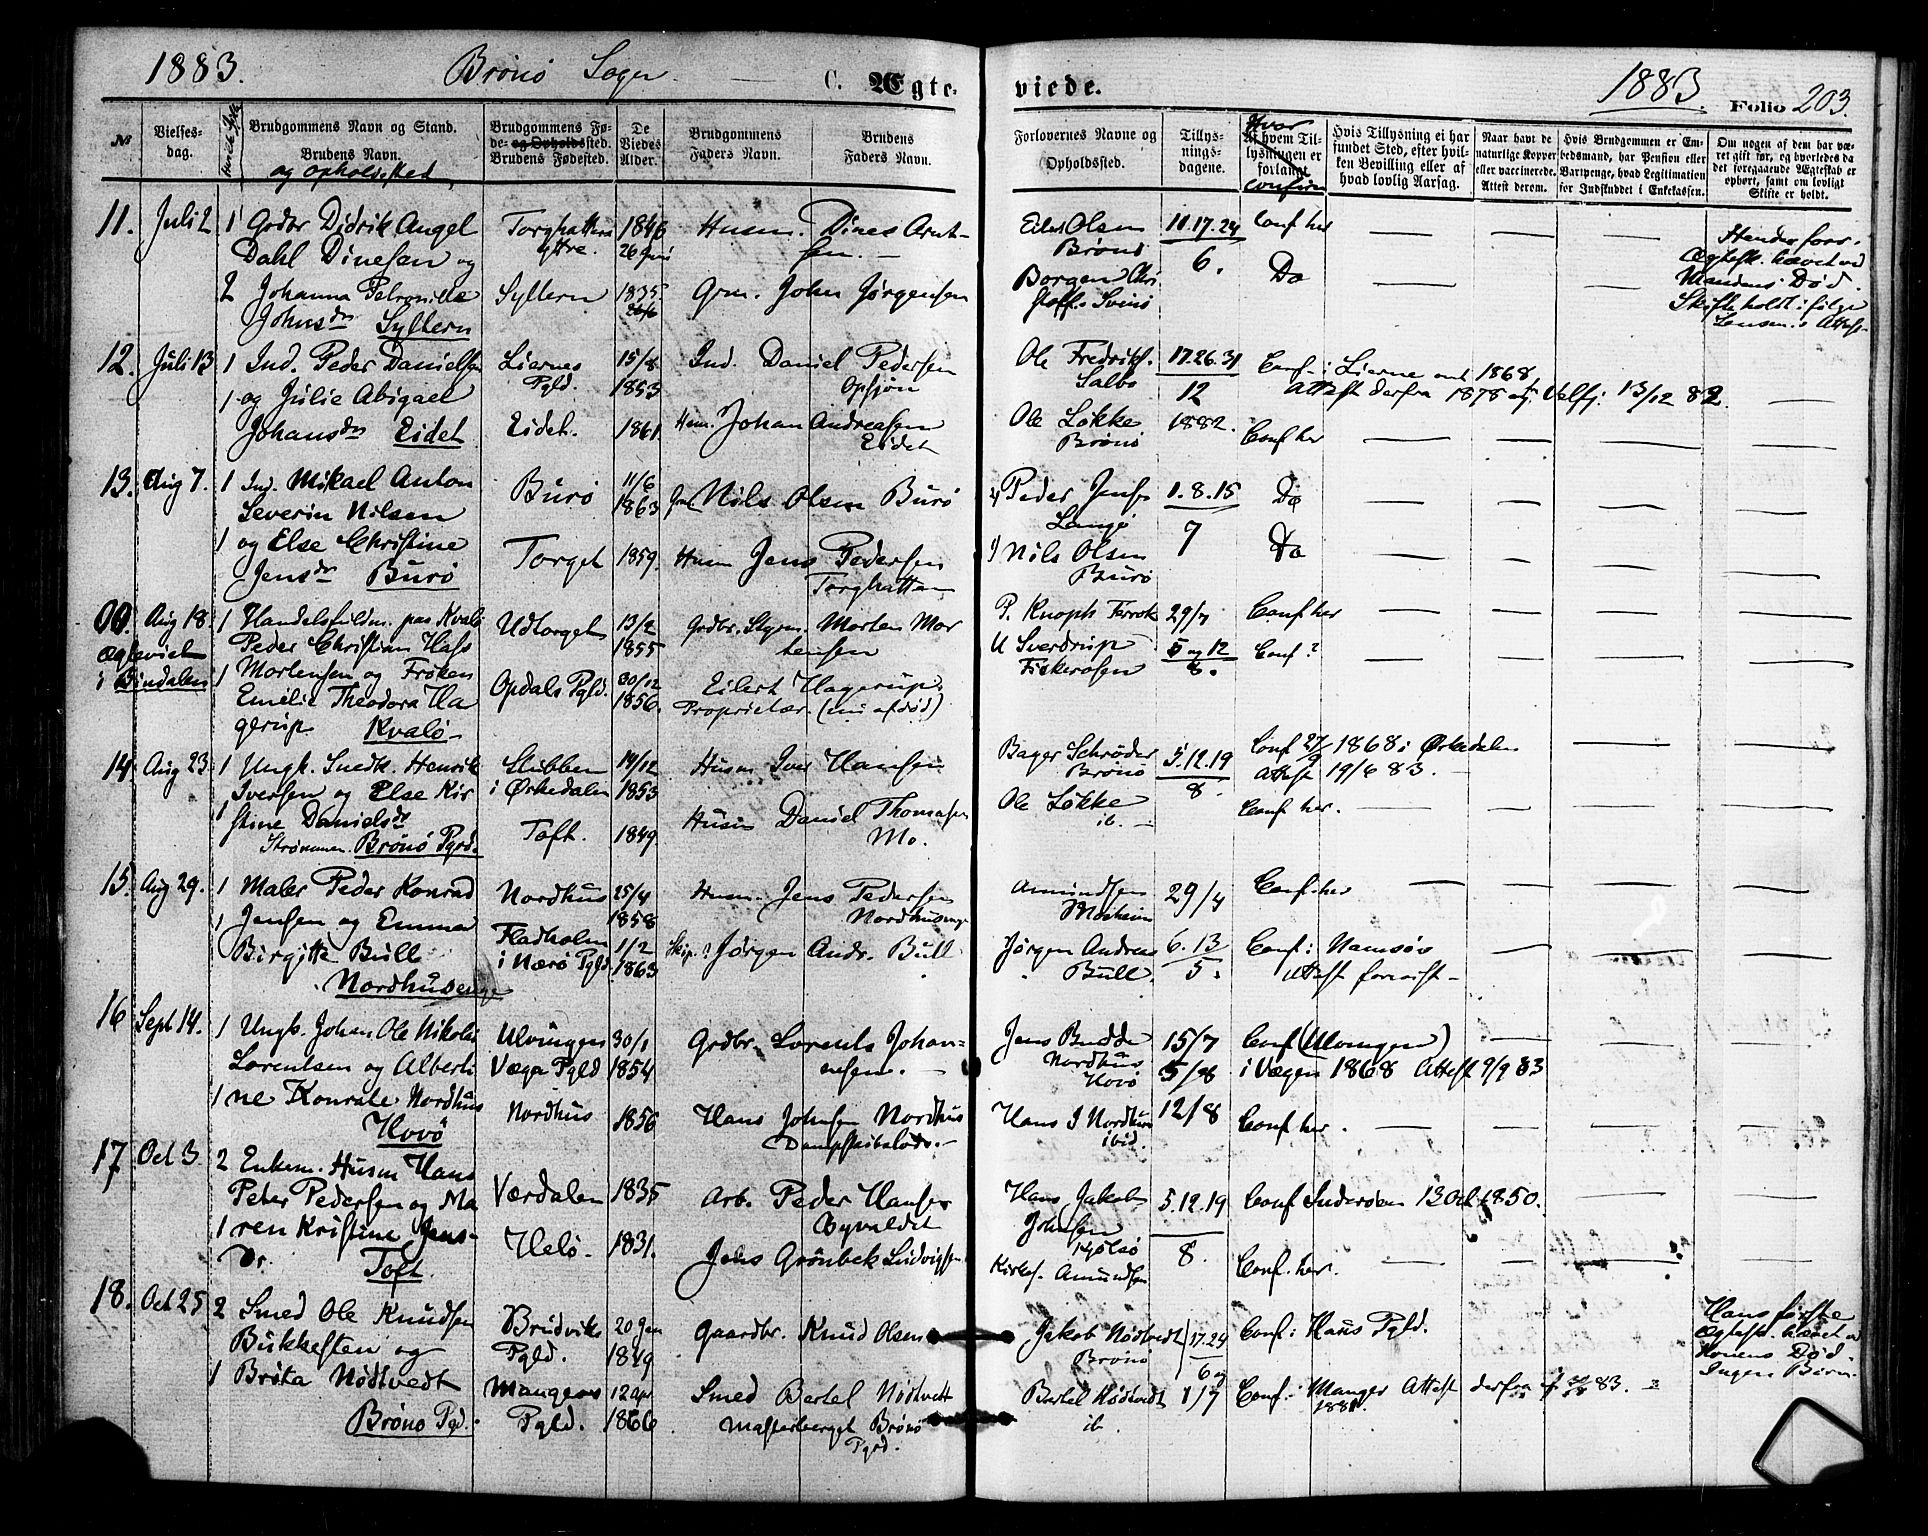 1883. Brønø Sogn. C. Ægteviede. 1883. Folio 203.
№ Vielsesdag. Brudgommens Navn og Stand. Brudens Navn. og opholdssted
Brudgommens Føde- og Opholdssted. Brudens Fødested.
De Viedes Alder.
Brudgommens Faders Navn. Brudens Faders Navn.
Forlovernes Navne og Opholdssted.
Tillysningsdagene.
Hvor Af hvem Tillysningen er forlangt confirm
Hvis Tillysning ei har fundet Sted, efter hvilken Bevilling eller af hvad lovlig Aarsag.
Naar havt de naturlige Kopper eller vaccinerede. Attest derom.
Hvis Brudgommen er Embedsmand, har Pension eller Vartpenge, hvad Legitimation for Indskuddet i Enkekassen.
Om nogen af dem har været gift før, og hvorledes da det foregaaende Ægteskab er ophørt, samt om lovligt Skifte er holdt.
11. Juli 2 1 Grdbr Didrik Angel Torghatten 1846 Husm. Dines Arnt- Eilert Olsen 10.17.24 Conf her
Dahl Dinesen og yttre. 26 Juni sen. Brønø 6.
2 Johanna Petronille Syltern 1835 Grm. John Jørgensen Borgen Chri Do
Johnsdr Syltern stoff. Svinø
Hendes forr. Ægtesk. hævet ved Mandens Død. Skifte holdt ifølge Lensm.s Attest
12. Juli 13 1 Ind. Peder Danielsen Liernes 15/8 Ind. Daniel Pedersen Ole Fredriks. 17.26.31 Conf. i Lierne 1868
1 og Julie Abigael Pgld. 1853 Opsjøn Salbo 12 Attest derfra 1878 Velfj. 13/12 82
Johansdr Eidet Eidet. 1861. Hm. Johan Andreasen Eidet Ole Løkke Brønø 1882. Conf her
13. Aug 7. 1 Ind. Mikael Anton Burø 11/6 1863 Nils Olsen Burø Peder Jens. 1.8.15 Do
Severin Nilsen Langø 7
1 og Else Christine Torget 1859. Husm Jens Pedersen Nils Olsen Do
Jensdr Burø Torghatten Burø
00. Aug 18. 1 Handelsfuldm. paa Kvalø Udtorget 13/2 Grdbr. Styrm. Morten Mor P. Knoph Terrak 29/7 Conf her
Ægteviet Peder Christian Hass 1855 tensen U Sverdrup 5 og 12 Conf?
i Bindalen 1 Mortensen og Frøken Opdals Pgld. 30/12 Eilert Hagerup. Fiskerosen 8.
Emelie Theodora Ha 1856. Proprietær. (nu afdød)
gerup Kvalø
14 Aug 23. 1 Ungk. Snedk. Henrik Stubben 14/12 Husm Iver Hansen Bager Schrøder 5.12.19 Conf 27/9 1868 i Ørkedalen
Iversen og Else Kir i Ørkedalen 1853 Brønø 8. Attest 19/6 83.
1 stine Danielsdr Toft. 1849. Husm Daniel Thomasen Ole Løkke Conf her.
Strømmen. Brønø Pgrd. Mo. ib.
15. Aug 29. 1 Maler Peder Konrad Nordhus 25/4 Husm. Jens Pedersen Amundsen 29/4 Conf. her
1 Jensen og Emma 1858 Nordhuseng Mosheim
Birgitte Bull Fladholm 1/2 Skip. ? Jørgen Andr. Bull Jørgen Andreas 6.13 Conf. i Namsos
Nordhuseng i Nærø Pgld. 1863 Bull 5. Attest forevist
16 Sept 14. 1 Ungk. Johan Ole Nikolai Ulvingen 30/1 Grdbr. Lorents Johan- Jens Budde 15/7 Conf (Ulvingen)
Lorentsen og Alberti Vega Pgld 1854 nesen. Nordhus Hovø 5/8 i Vægen 1868 Attest 9/9 83
1 ne Konrade Nordhus Nordhus 1856 Hans Johnsen Nordhus Hans J Nordhus 12/8 Conf. her.
Hovø Dampskibslods. ibid.
17 Oct 3. 2 Enkem. Husm Hans Værdalen 1835 Arb. Peder Hansen Hans Jakob 5.12.19 Conf Inderøen 13 Oct 1850.
Peter Pedersen og Ma Byvaldet Johnsen 8.
1 ren Kristine Jens- Helø. 1831. Jens Grønbek Ludvigsen Kjølsø
Dr. Toft. Kirkes. Amundsen Conf. her.
18. Oct 25 2 Smed Ole Knudsen Bruvik 20 Jan Gaardbr. Knud Olsen Jakob Nødtvedt 17.24 Conf. i Haus Pgld.
Bukkesten og Pgld. 1849 Brønø 6 og
1 Brita Nødtvedt Mangers 12 Apr Smed Bertel Nødtvedt Bertel Nødtvedt 1/7 Conf. i Manger Attest derfra 83.
Brønø Pgd. Pgld. 1866 Brønø Pgrd. ib. 1881.
Hans første Ægtesk. hævet v Konens Død. Ingen Børn.